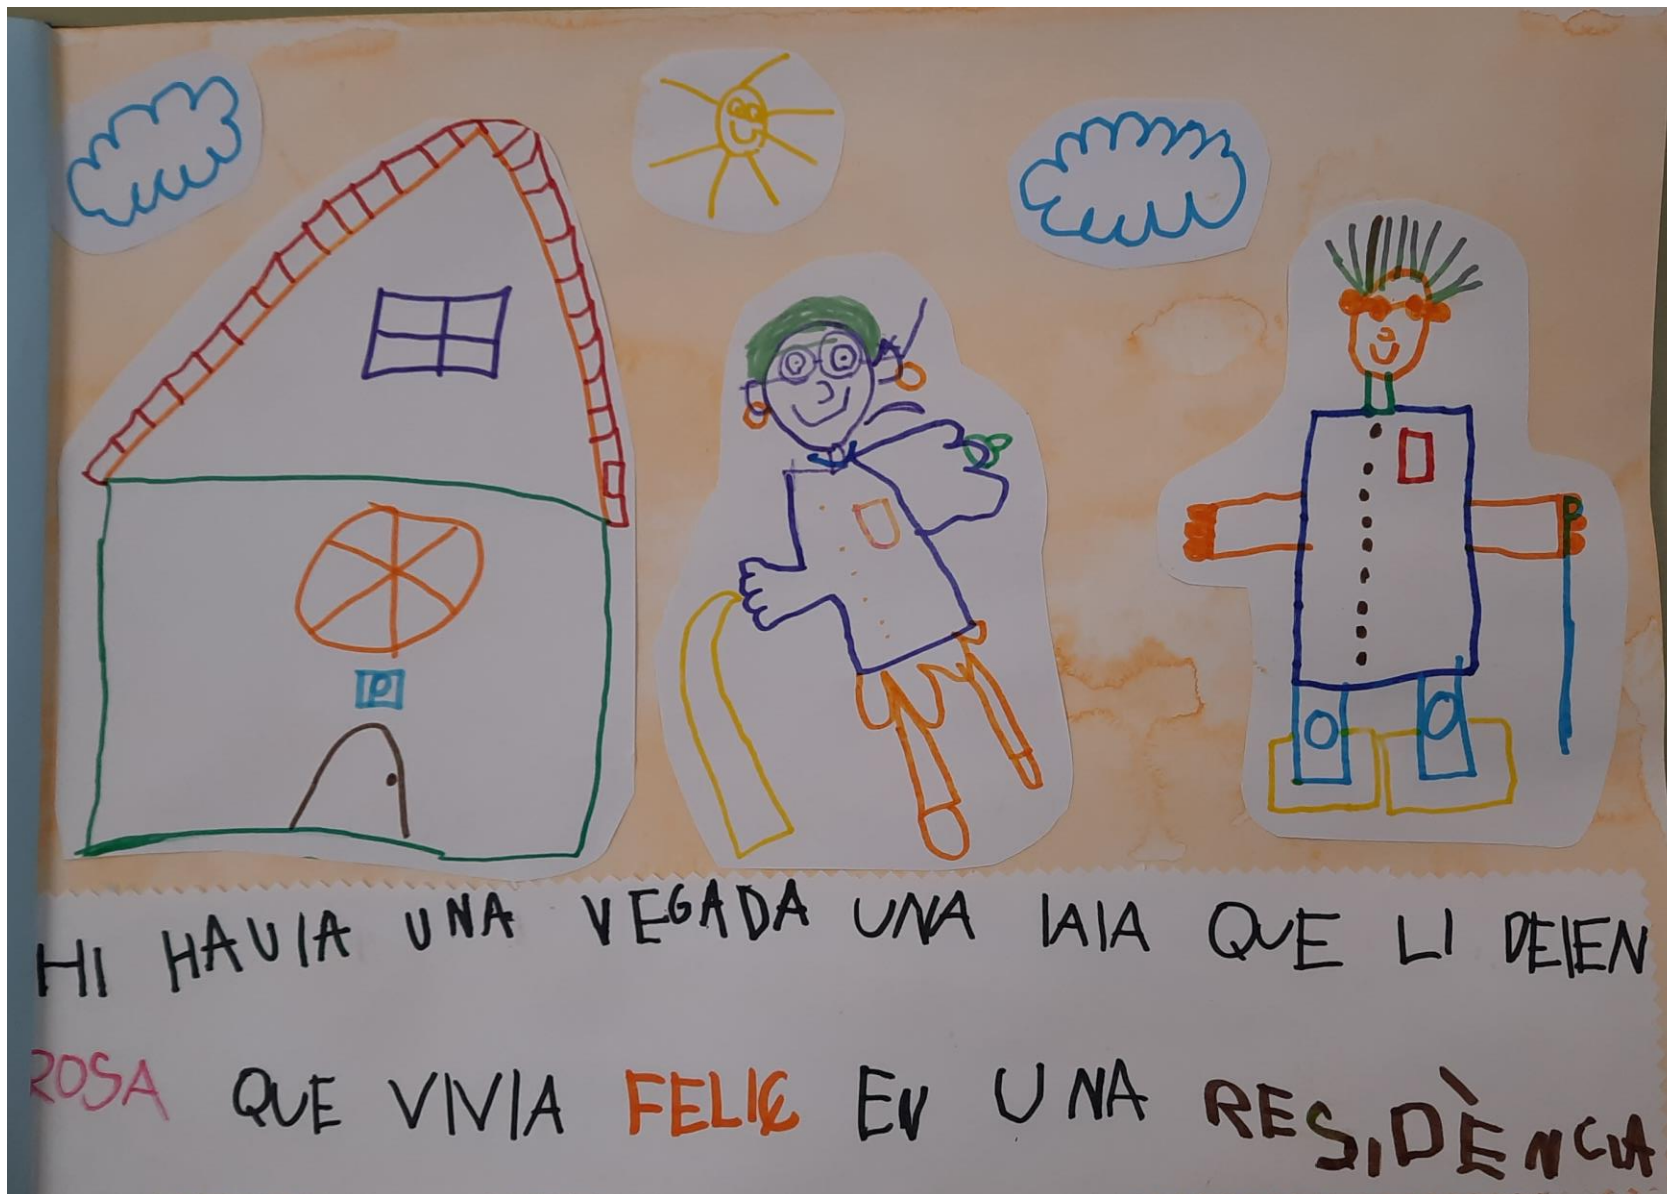 P
HI HAVIA UNA VEGADA UNA IAIA QUE LI DEIEN
ROSA QUE VIVIA FELIÇ EN UNA RESIDÈNCIA